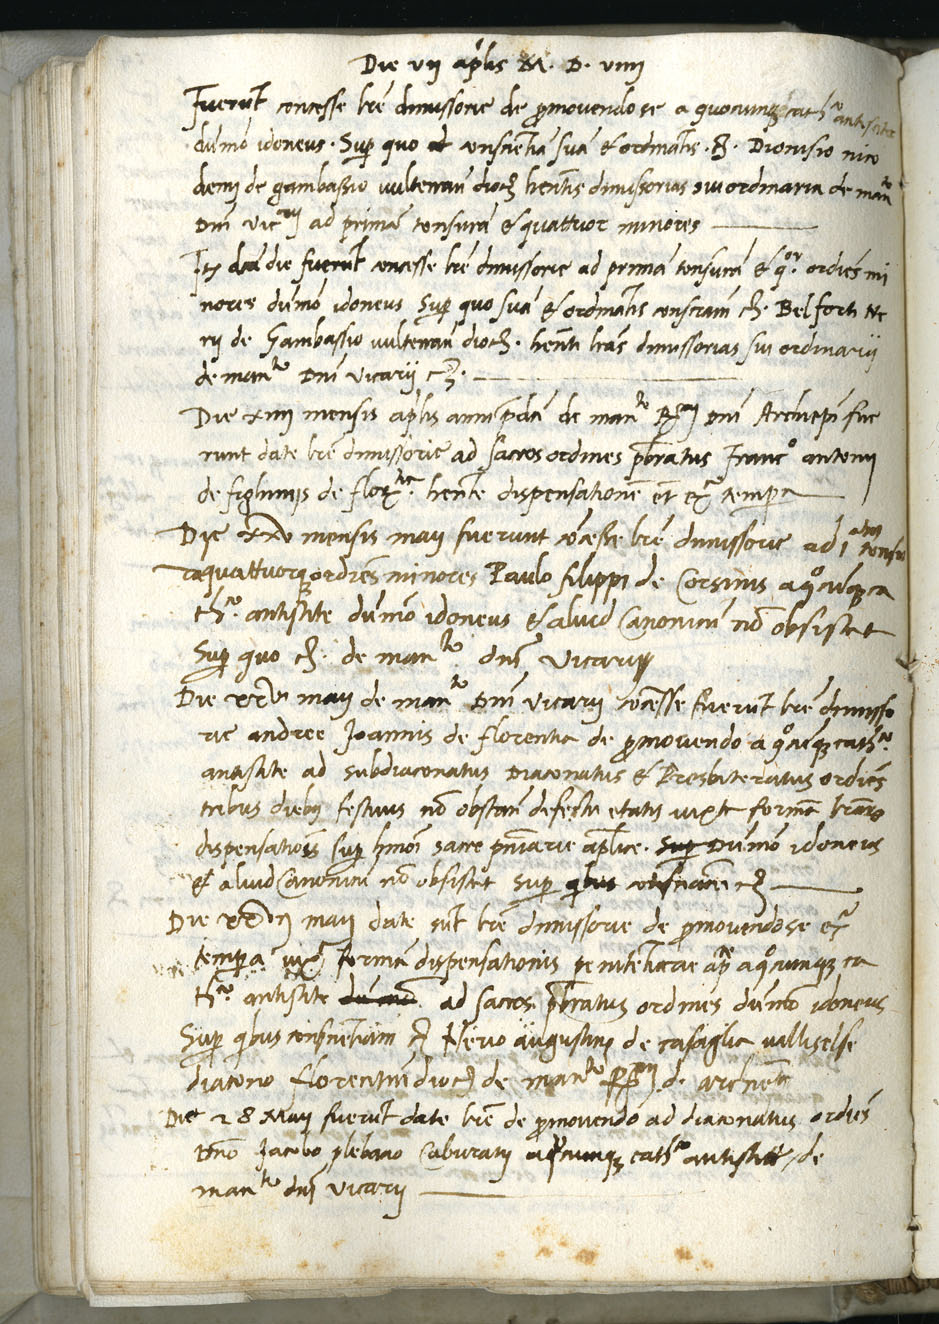 Die vij aplis M. D. viiij
Fuerut concesse lre dimissorie de promovendo se a quocumq cath antistite
dumo idoneus. Sup quo conscietia sua et ordinatis. Dionisio nico
demi de gambassio vulterran dioc hentis dimissorias sui ordinaria de man.to
Dni vicarij ad prima tonsura et quattuor minores
It dca die fuerut concesse lre dimissorie ad prima tonsura et q.or ordies mi
nores dumo idoneus Sup quo sua et ordinatis conscram c. Belforti Ne
rij de Gambassio vulterran dioc. henti lras dimissorias sui ordinarij
de man.to Dni Vicarij c.
Die xiiij mensis aplis anni pdci de man.to R.mi Dni Archiepi fue
runt date lre dimissorie ad sacros ordines pbratus Franc.o antonij
de de flor. hente dispensatione et ex.a tempora
Die xxv mensis maij fuerunt cocesse lre dimissorie ad 1.am tonsu
raquattuorq ordies minores Paulo filippi de Corsinis a qocuqca
th.co antistite dumo idoneus et aliud Canonicu no obsistet
Sup quo c. de man.to dni vicarij
Die xxvi maij de man.to Dni Vicarij cocesse fuerut lre dimisso
rie andree Joannis de florentia de promovendo a qocuq cath.co
antistite ad subdiaconatus Diaconatus et Presbiteratus ordies
tribus diebus festivis no obstan defectu etatis iuxta forma lraru
dispensatiois sup hmoi sacre pniarie aplice. Dumo idoneus
et aliud Canonicu no obsistet Sup qbus consciam c
Die xxvij maij date sut lre dimissorie de promovendo se ex.a
tempora iux.a forma dispensationis penitetierae ap.ce a qocumq ca
th.co antistite ad sacros pbratus ordines dumo idoneus
Sup qbus conscietiam Nerio augustini de casaglia valliselse
diacono florentini dioc de man.to R.mi d. archiepi
Die 28 Maij fuerut date lre de promovendo ad diaconatus ordies
Dno Jacobo plebano Caburatij cath.co antistite, de
man.to dni vicarij